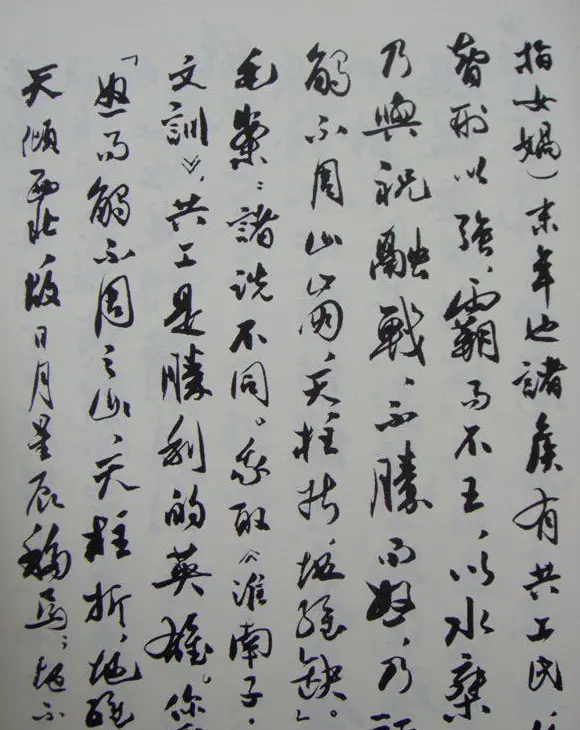 指女媧)末年也諸侯有共工氏,
智刑以強,霸而不王,以水乘
乃與祝融戰,不勝而怒,乃
觸不周山崩,天柱折,地維缺」。
毛案:諸說不同。我取《淮南子·
文訓》,共工是勝利的英雄。你
「怒而觸不周之山,天柱折,地維
天傾西北,故日月星辰移焉;地不